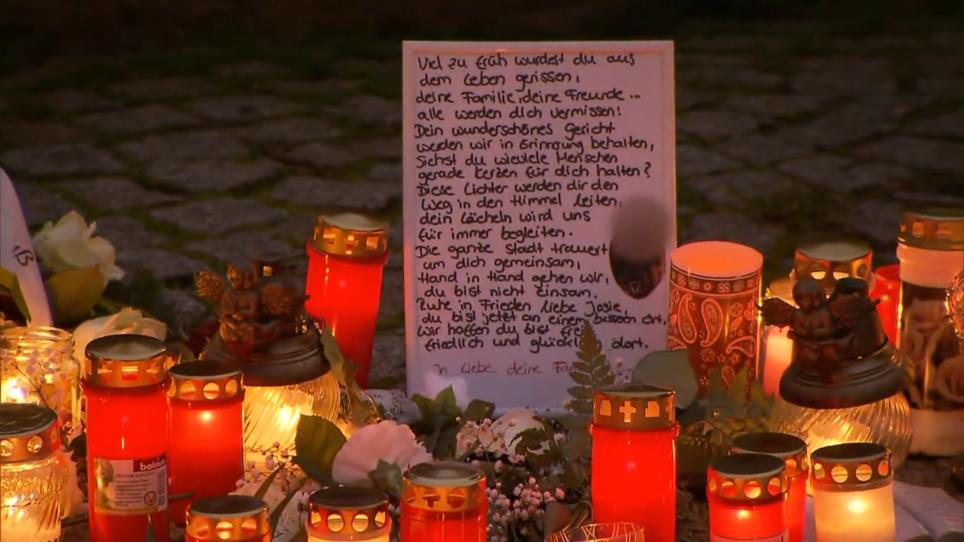 Viel zu früh wurdest du aus
dem Leben gerissen,
deine Familie, deine Freunde ...
alle werden dich vermissen!
Dein wunderschönes Gesicht
werden wir in Erinnerung behalten,
Siehst du wieviele Menschen
gerade Kerzen für dich halten?
Diese Lichter werden dir den
Weg in den Himmel leiten,
dein Lächeln wird uns
für immer begleiten.
Die ganze Stadt trauert
um dich gemeinsam,
Hand in Hand gehen wir,
du bist nicht einsam,
Ruhe in Frieden liebe Josie,
du bist jetzt an einem besseren Ort,
Wir hoffen du bist
friedlich und glücklich dort.
In Liebe deine
bolsius